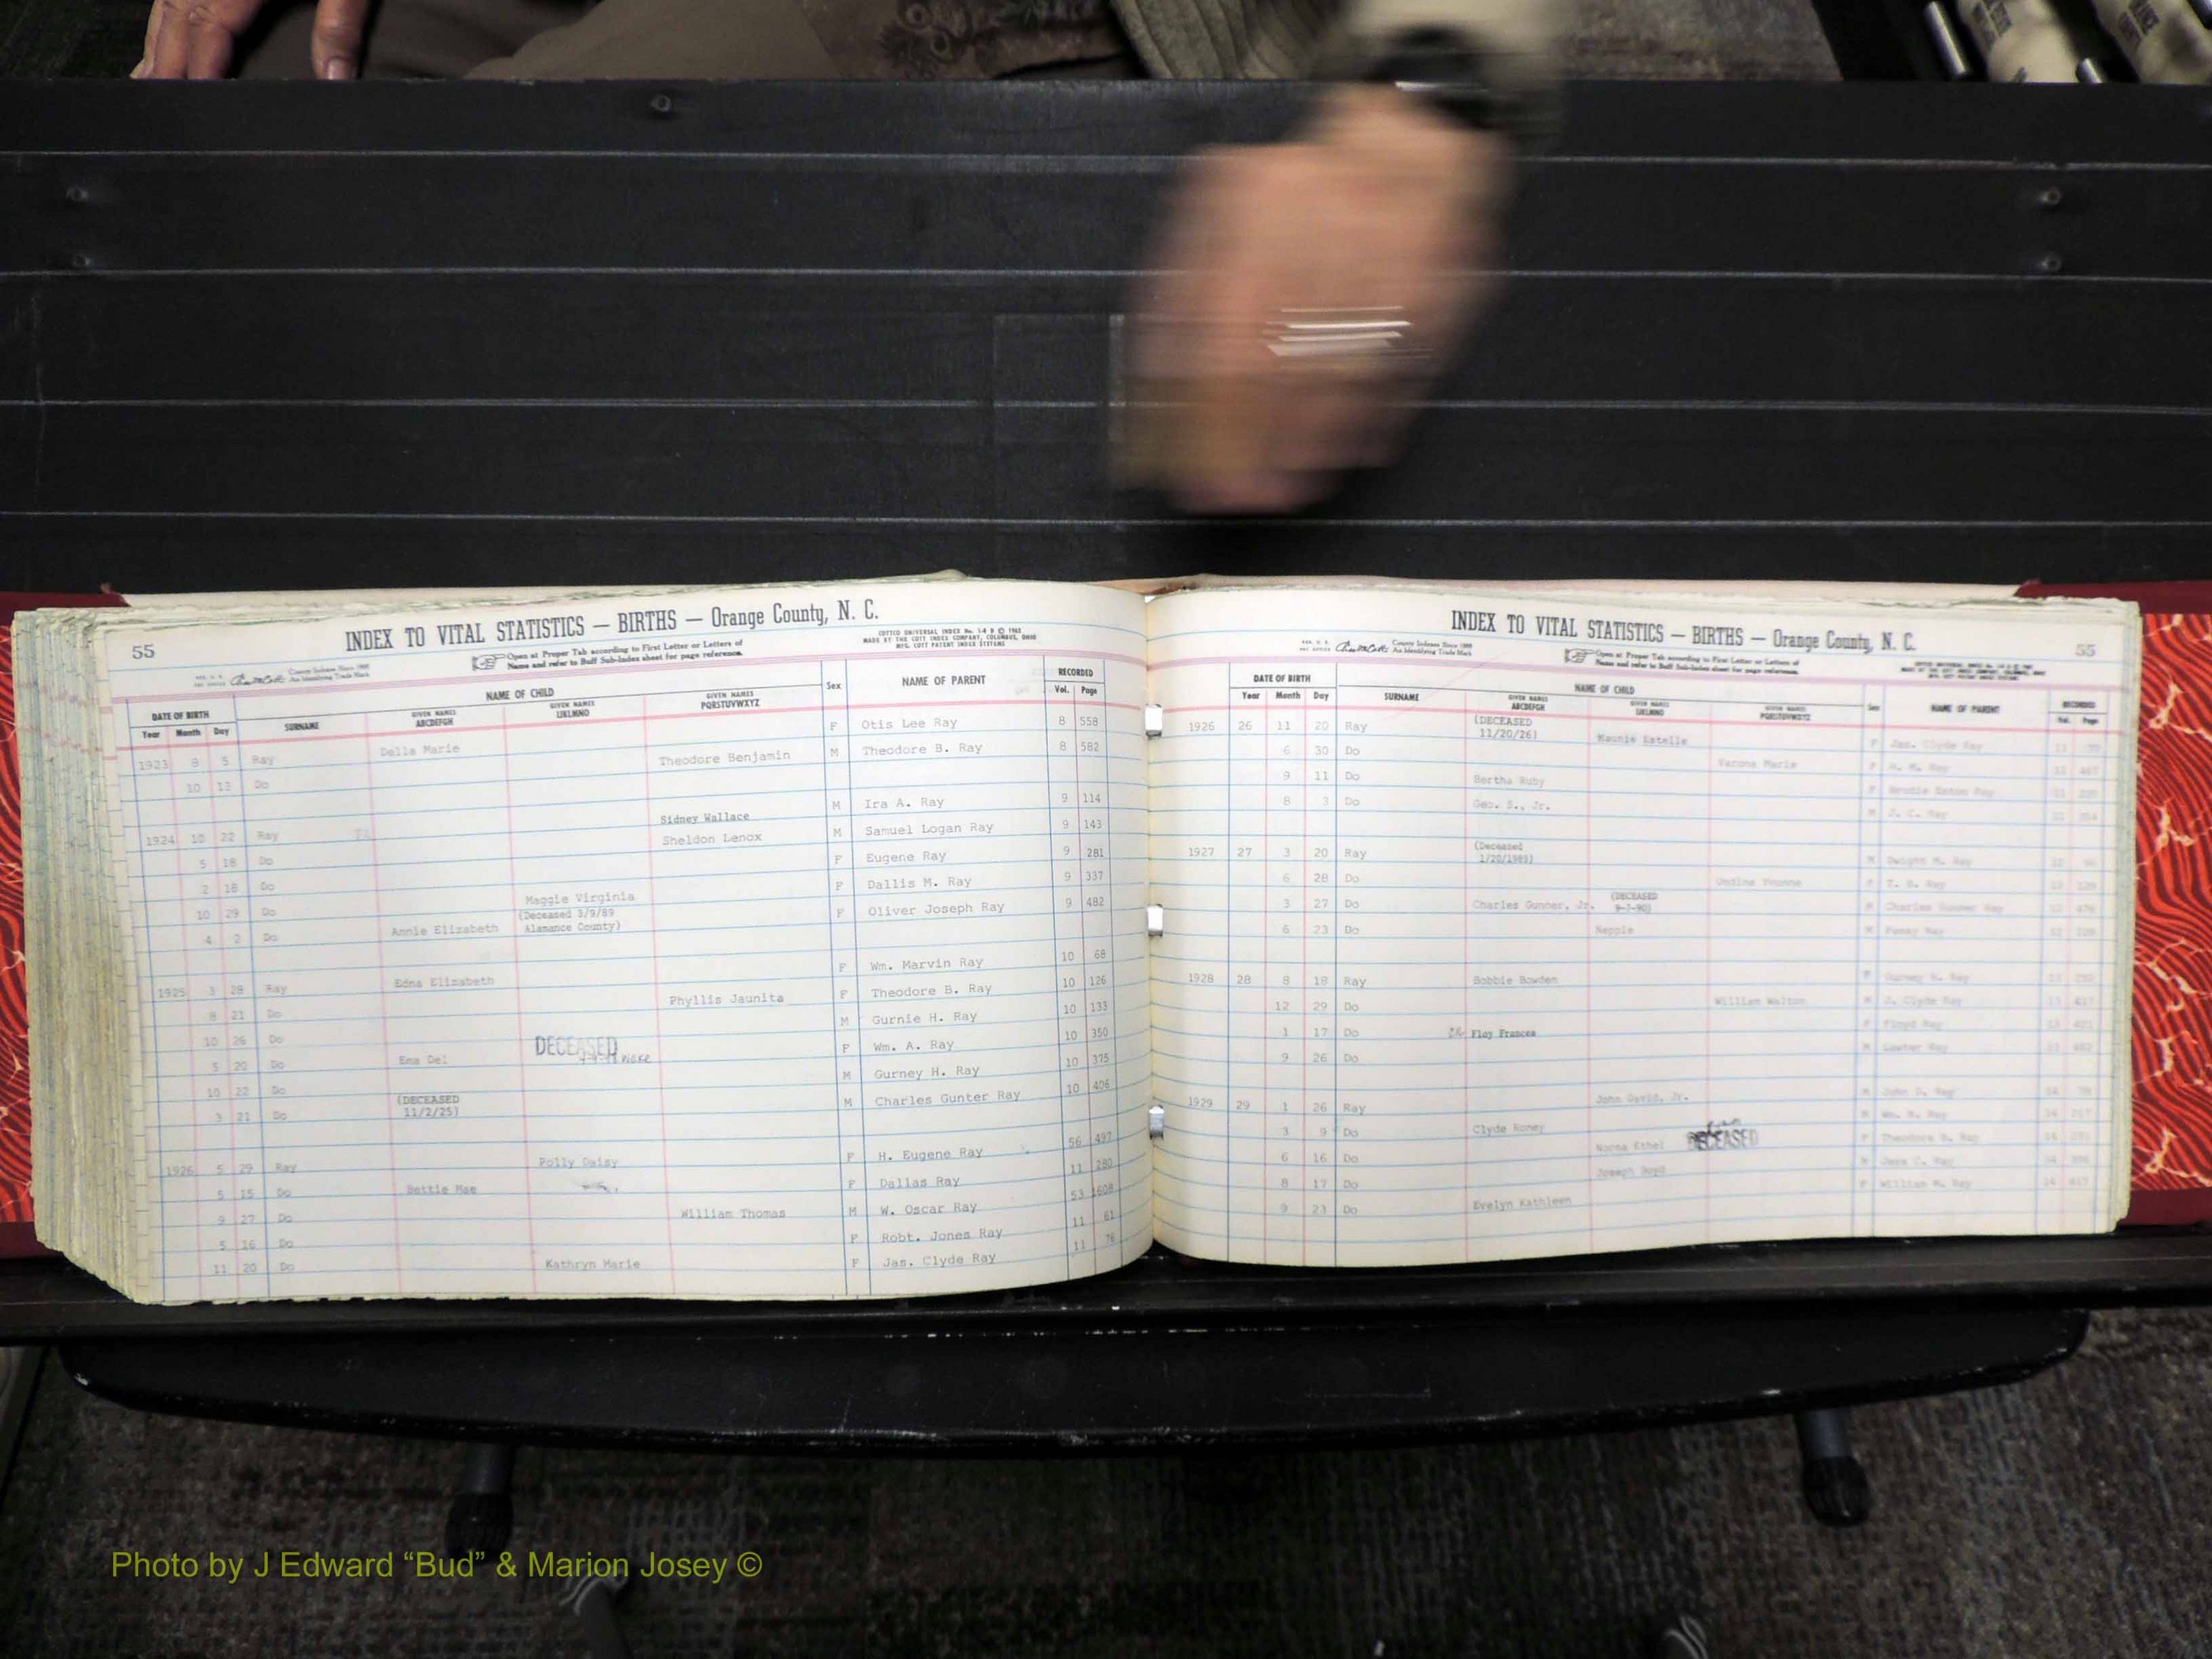 55
INDEX TO VITAL STATISTICS — BIRTHS — Orange County, N. C.
Open at Proper Tab according to First Letter or Letters of
Name and refer to Buff Sub-Index sheet for page reference.
COTTCO UNIVERSAL INDEX
MADE BY THE COTT INDEX COMPANY, COLUMBUS, OHIO
County Indexes Since 1888
An Identifying Trade Mark
DATE OF BIRTH NAME OF CHILD Sex NAME OF PARENT RECORDED
Year Month Day SURNAME GIVEN NAMES ABCDEFGH GIVEN NAMES IJKLMNO GIVEN NAMES PQRSTUVWXYZ Vol. Page
1923 8 5 Ray Della Marie F Otis Lee Ray 8 558
10 13 Do Theodore Benjamin M Theodore B. Ray 8 582
1924 10 22 Ray Sidney Wallace M Ira A. Ray 9 114
5 18 Do Sheldon Lenox M Samuel Logan Ray 9 143
2 18 Do F Eugene Ray 9 281
10 29 Do Maggie Virginia F Dallis M. Ray 9 337
(Deceased 3/9/89
4 2 Do Annie Elizabeth Alamance County) F Oliver Joseph Ray 9 482
1925 3 28 Ray Edna Elizabeth F Wm. Marvin Ray 10 68
8 21 Do Phyllis Jaunita F Theodore B. Ray 10 126
10 26 Do M Gurnie H. Ray 10 133
5 20 Do Ema Del DECEASED F Wm. A. Ray 10 350
10 22 Do M Gurney H. Ray 10 375
(DECEASED
3 21 Do 11/2/25) M Charles Gunter Ray 10 406
1926 5 29 Ray Polly Daisy F H. Eugene Ray 56 497
5 15 Do Bettie Mae F Dallas Ray 11 280
9 27 Do William Thomas M W. Oscar Ray 53 1608
5 16 Do F Robt. Jones Ray 11 61
11 20 Do Kathryn Marie F Jas. Clyde Ray 11 76
INDEX TO VITAL STATISTICS — BIRTHS — Orange County, N. C.
55
County Indexes Since 1888
An Identifying Trade Mark
Open at Proper Tab according to First Letter or Letters of
Name and refer to Buff Sub-Index sheet for page reference.
DATE OF BIRTH NAME OF CHILD Sex NAME OF PARENT RECORDED
Year Month Day SURNAME GIVEN NAMES ABCDEFGH GIVEN NAMES IJKLMNO GIVEN NAMES PQRSTUVWXYZ Vol. Page
(DECEASED
1926 26 11 20 Ray 11/20/26) Estelle F Jas. Clyde Ray
6 30 Do Marie F Ray
9 11 Do Bertha Ruby F Ray
8 3 Do Geo. S., Jr. M J. C. Ray
(Deceased
1927 27 3 20 Ray 1/20/1985) M Dwight M. Ray
6 28 Do Yvonne F Ray
(DECEASED
3 27 Do Charles Gunner, Jr. 9-7-90) M Charles Ray
6 23 Do Neppie M Ray
1928 28 8 18 Ray Bobbie Bowden Gurney H. Ray
12 29 Do William Walton M J. Clyde Ray
1 17 Do Floy Frances F Floyd Ray
9 26 Do M Ray
1929 29 1 26 Ray John David, Jr. M John D. Ray
3 9 Do Clyde Roney M Wm. Ray
6 16 Do Norma Ethel DECEASED F Theodore B. Ray
8 17 Do Joseph Boyd M Ray
9 23 Do Evelyn Kathleen F William M. Ray
Photo by J Edward “Bud” & Marion Josey ©